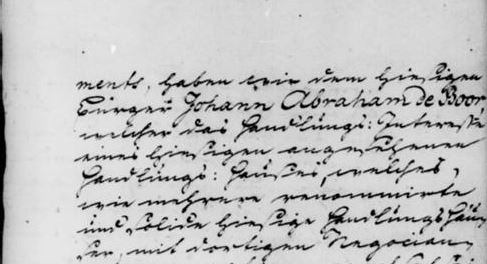 ments, haben wir dem hiesigen
Bürger Johann Abraham de Boor,
welcher das Handlungs: Interesse
eines hiesigen angesehenen
Handlungs: Hauses, welches,
wie mehrere renommirte
und solide hiesige Handlungs Häu-
ser, mit dortigen Negocian-